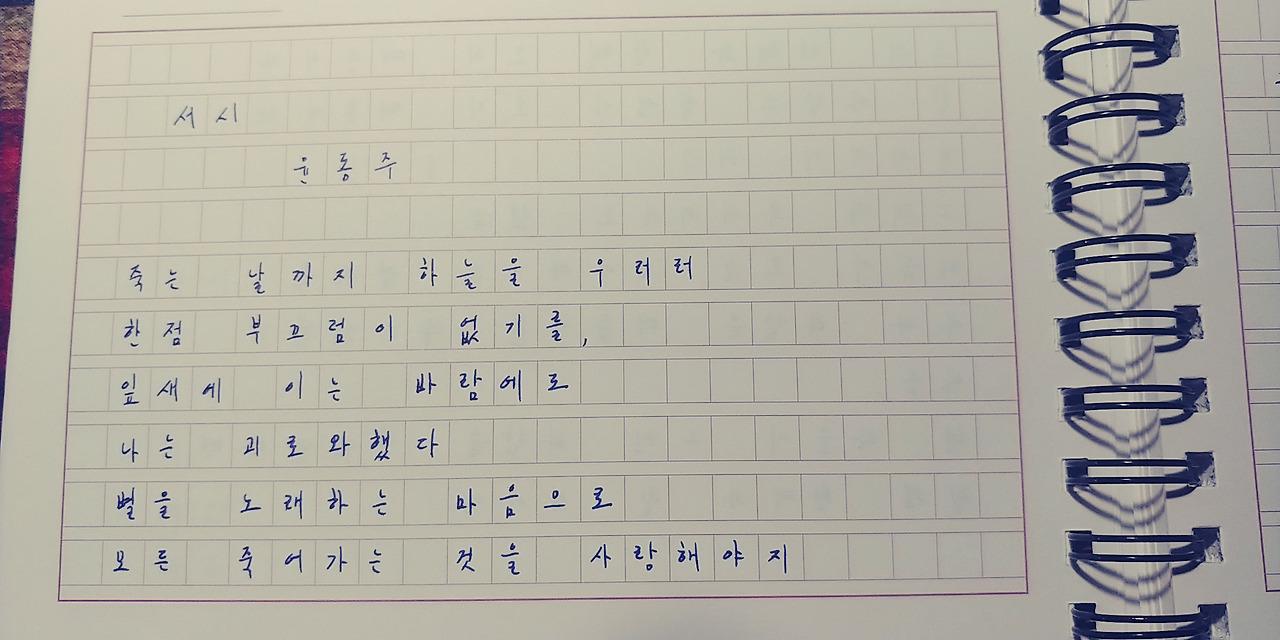 서시
윤동주
죽는 날까지 하늘을 우러러
한점 부끄럼이 없기를,
잎새에 이는 바람에도
나는 괴로와했다
별을 노래하는 마음으로
모든 죽어가는 것을 사랑해야지